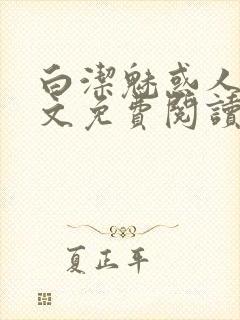 白潔魅或人
文免費閱讀
夏正平